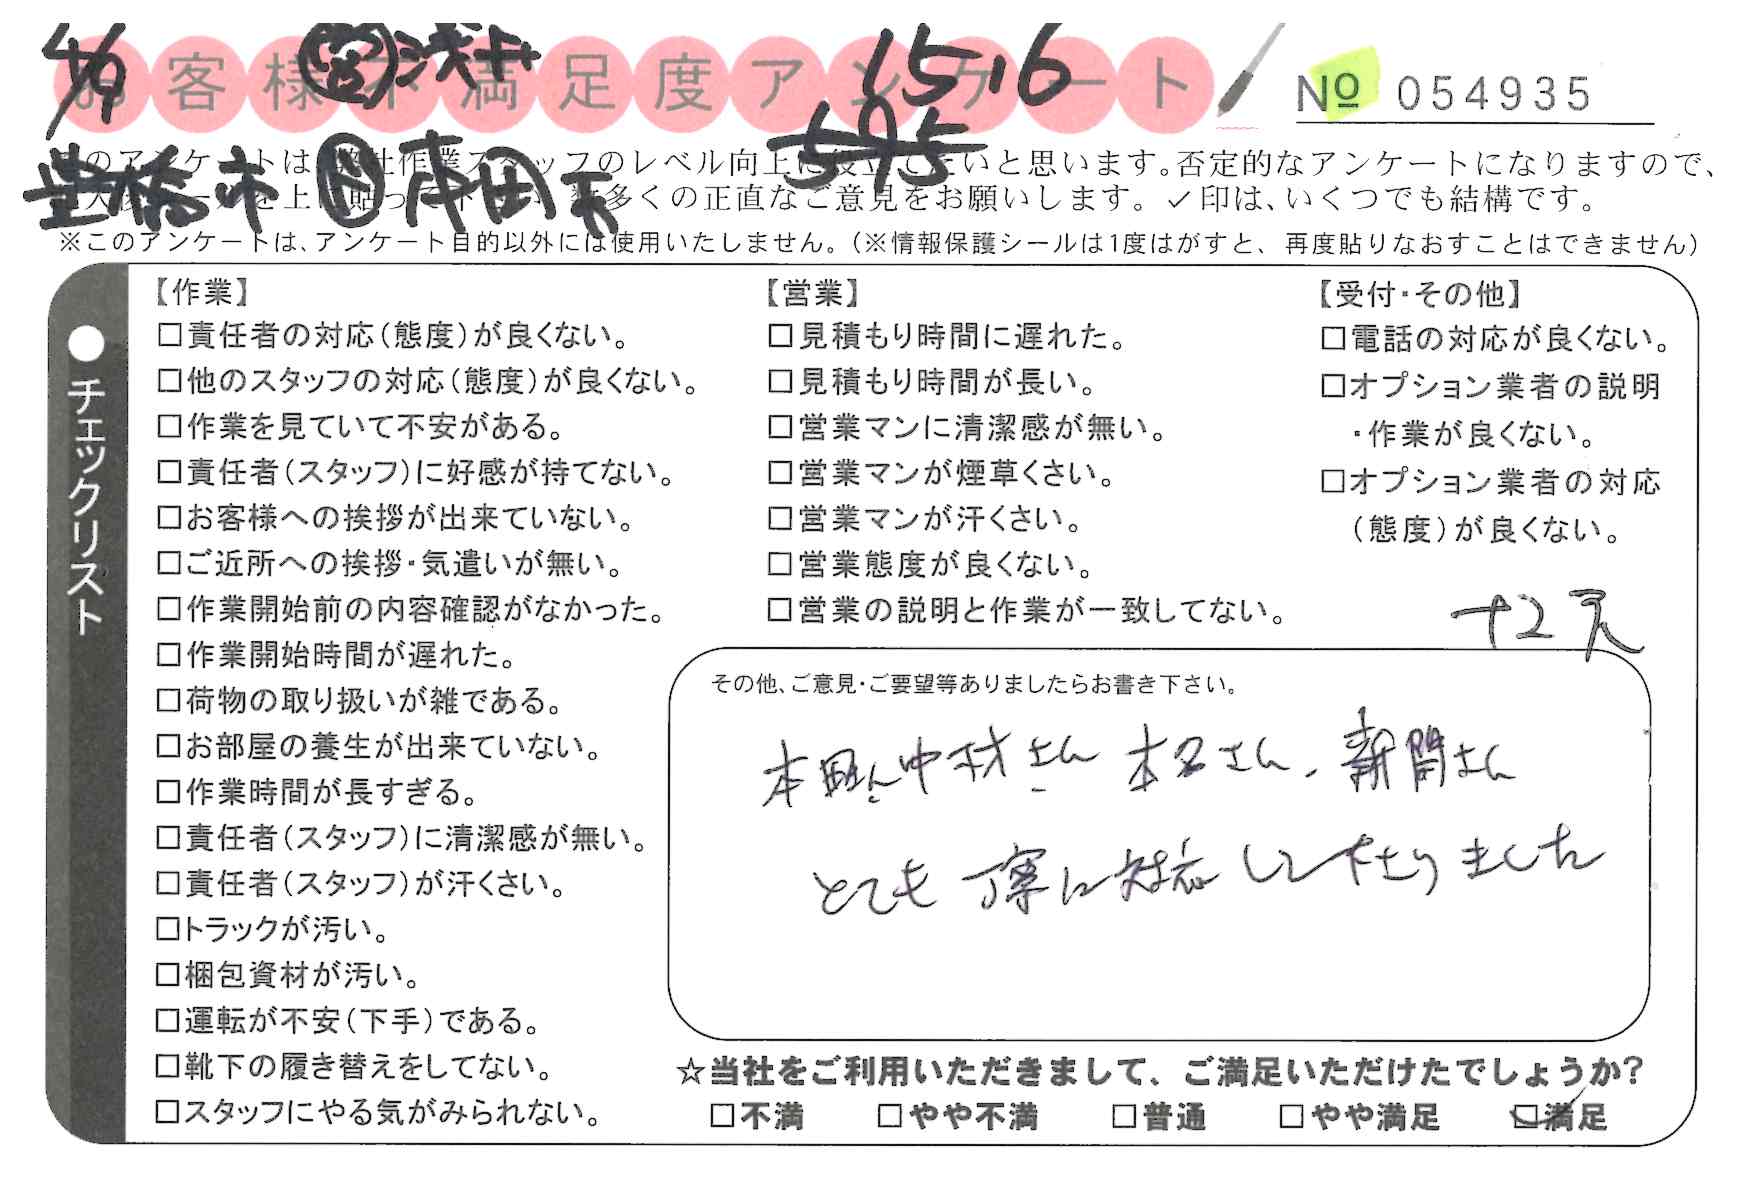 4/9 ㊂浅井 15.16
お客様不満足度アンケート No 054935
595
このアンケートは、弊社作業スタッフのレベル向上に役立てたいと思います。否定的なアンケートになりますので、
豊橋市 本田
を上に貼って下さい、数多くの正直なご意見をお願いします。✓印は、いくつでも結構です。
※このアンケートは、アンケート目的以外には使用いたしません。(※情報保護シールは1度はがすと、再度貼りなおすことはできません)
●チェックリスト
【作業】
□責任者の対応(態度)が良くない。
□他のスタッフの対応(態度)が良くない。
□作業を見ていて不安がある。
□責任者(スタッフ)に好感が持てない。
□お客様への挨拶が出来ていない。
□ご近所への挨拶・気遣いが無い。
□作業開始前の内容確認がなかった。
□作業開始時間が遅れた。
□荷物の取り扱いが雑である。
□お部屋の養生が出来ていない。
□作業時間が長すぎる。
□責任者(スタッフ)に清潔感が無い。
□責任者(スタッフ)が汗くさい。
□トラックが汚い。
□梱包資材が汚い。
□運転が不安(下手)である。
□靴下の履き替えをしてない。
□スタッフにやる気がみられない。
【営業】
□見積もり時間に遅れた。
□見積もり時間が長い。
□営業マンに清潔感が無い。
□営業マンが煙草くさい。
□営業マンが汗くさい。
□営業態度が良くない。
□営業の説明と作業が一致してない。
【受付・その他】
□電話の対応が良くない。
□オプション業者の説明
・作業が良くない。
□オプション業者の対応
(態度)が良くない。
+2
その他、ご意見・ご要望等ありましたらお書き下さい。
本田さん 中村さん 本名さん、新聞さん
とても 丁寧に対応して下さりました
☆当社をご利用いただきまして、ご満足いただけたでしょうか?
□不満 □やや不満 □普通 □やや満足 ☑満足